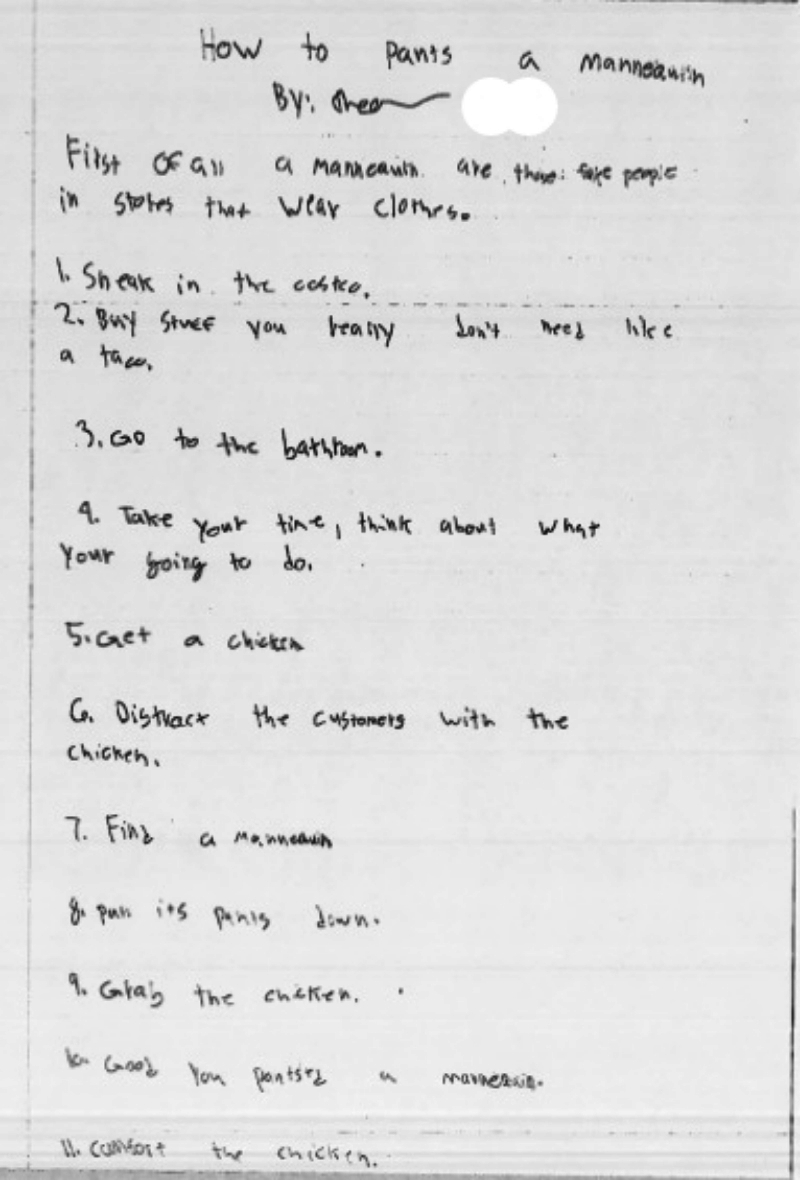 How to pants a mannequin
By: Theo
First of all a mannequin are those fake people
in stores that wear clothes.
1. Sneak in the costco.
2. Buy stuff you really don't need like
a taco.
3. Go to the bathroom.
4. Take your time, think about what
your going to do.
5. Get a chicken
6. Distract the customers with the
chicken.
7. Find a mannequin
8. pull its pants down.
9. Grab the chicken.
10. Good you pantsed a mannequin.
11. comfort the chicken.